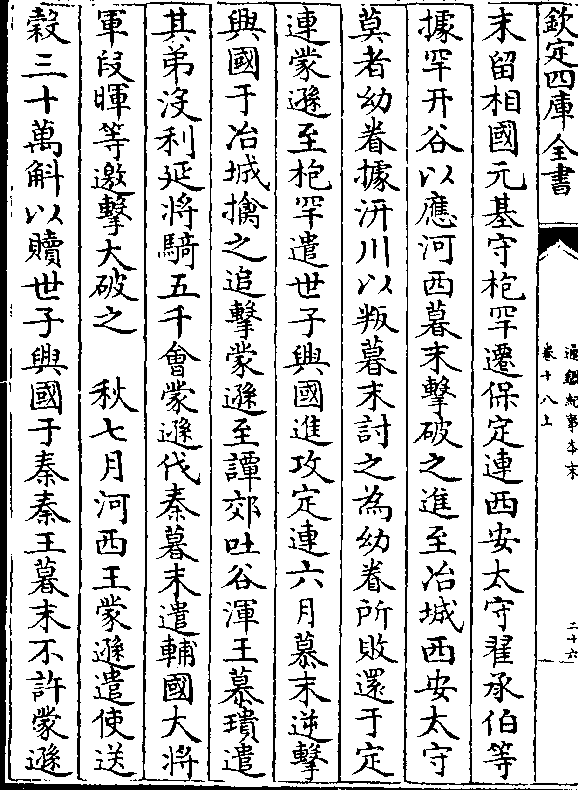 欽定四庫全書
通鑑紀事本末
卷十八上
二十六
末留相國元基守枹罕遷保定連西安太守翟承伯等
據罕幵谷以應河西暮末擊破之進至冶城西安太守
莫者幼眷據汧川以叛暮末討之為幼眷所敗還于定
連蒙遜至枹罕遣世子興國進攻定連六月慕末逆擊
興國于冶城擒之追擊蒙遜至譚郊吐谷渾王慕璝遣
其弟沒利延將騎五千會蒙遜伐秦暮末遣輔國大將
軍段暉等邀擊大破之　秋七月河西王蒙遜遣使送
穀三十萬斛以贖世子興國于秦秦王暮末不許蒙遜